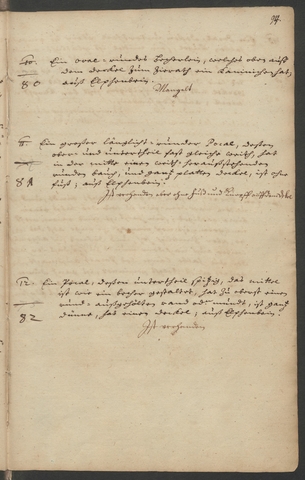 94.
10. Ein oval-rundes Becherlein, welches oben auf
dem deckel zum Zierrath ein Caninichen hat,
80 auß Elphenbein.
Mangelt
11. Ein großer länglicht-runder Pocal, deßen
ober- und untertheil fast gleiche weith, hat
in der mitte einen weith-heraußstehenden
runden bauch, und gantz platten deckel, ist ohne
81 fuß; auß Elphenbein.
Ist vorhanden aber ohne
12. Ein Pocal, deßen untertheil spitzig, das mittel
ist wie ein becher gestaltet, hat zu oberst einen
rund-außgehölten rand oder mundt, ist gantz
82 dünne, hat einen deckel; auß Elphenbein.
Ist vorhanden